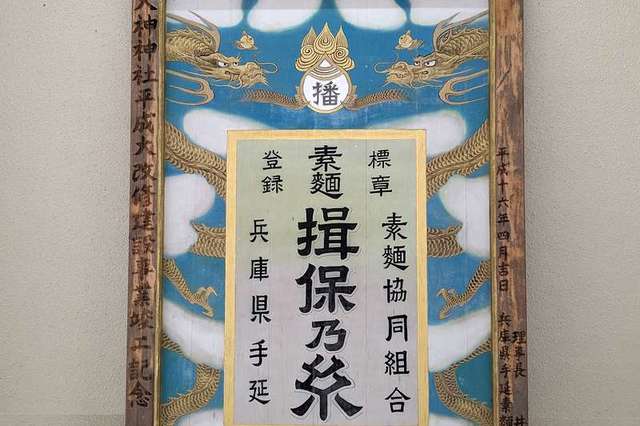 播
標章
素麵協同組合
素麵
揖保乃糸
登録
兵庫県手延
平成十六年四月吉日
兵庫県手延素麵
理事長 井
神神社平成大改修建設事業竣工記念